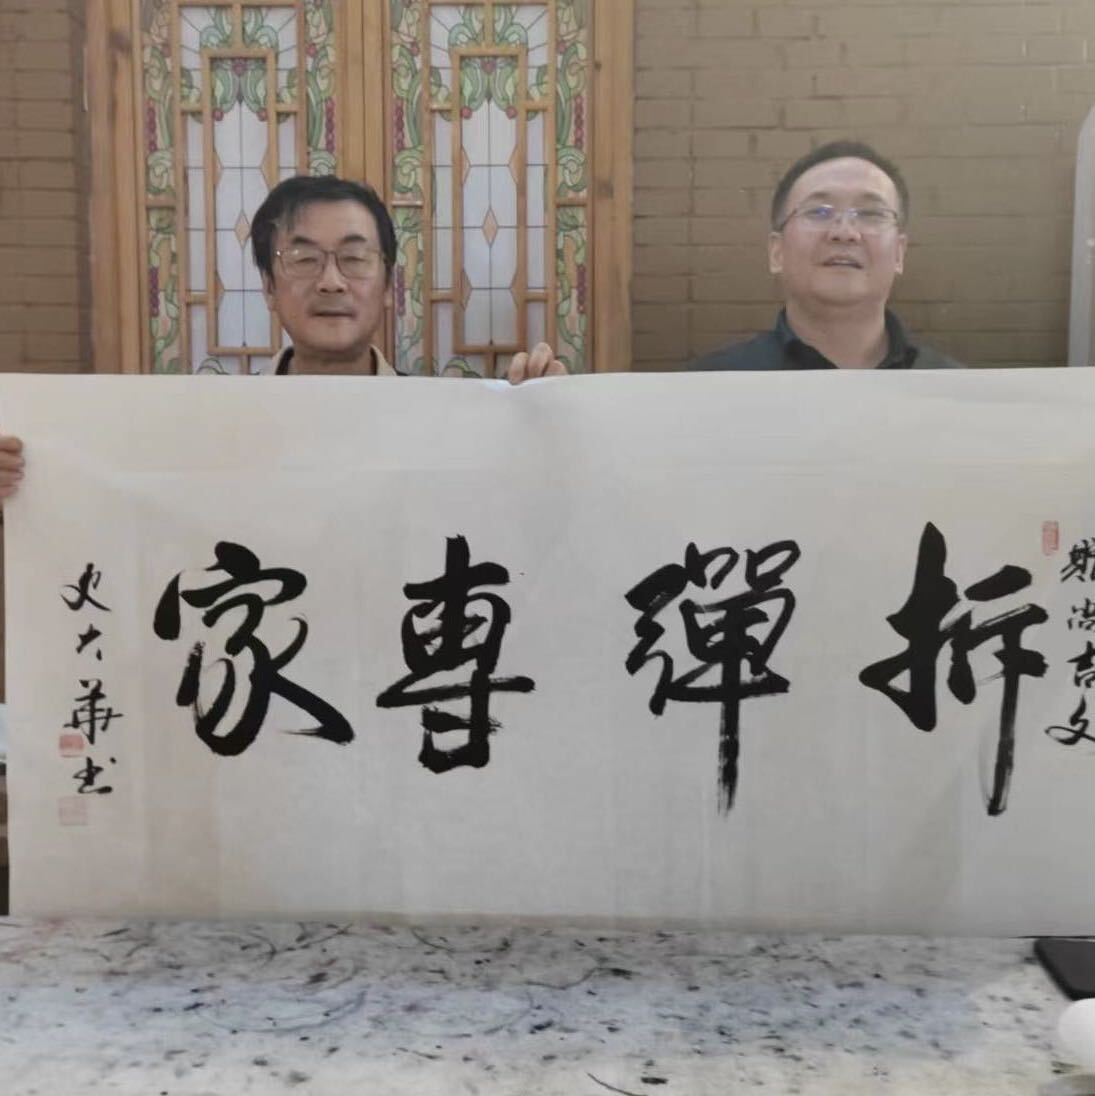 尚吉文
拆彈專家
史大華书